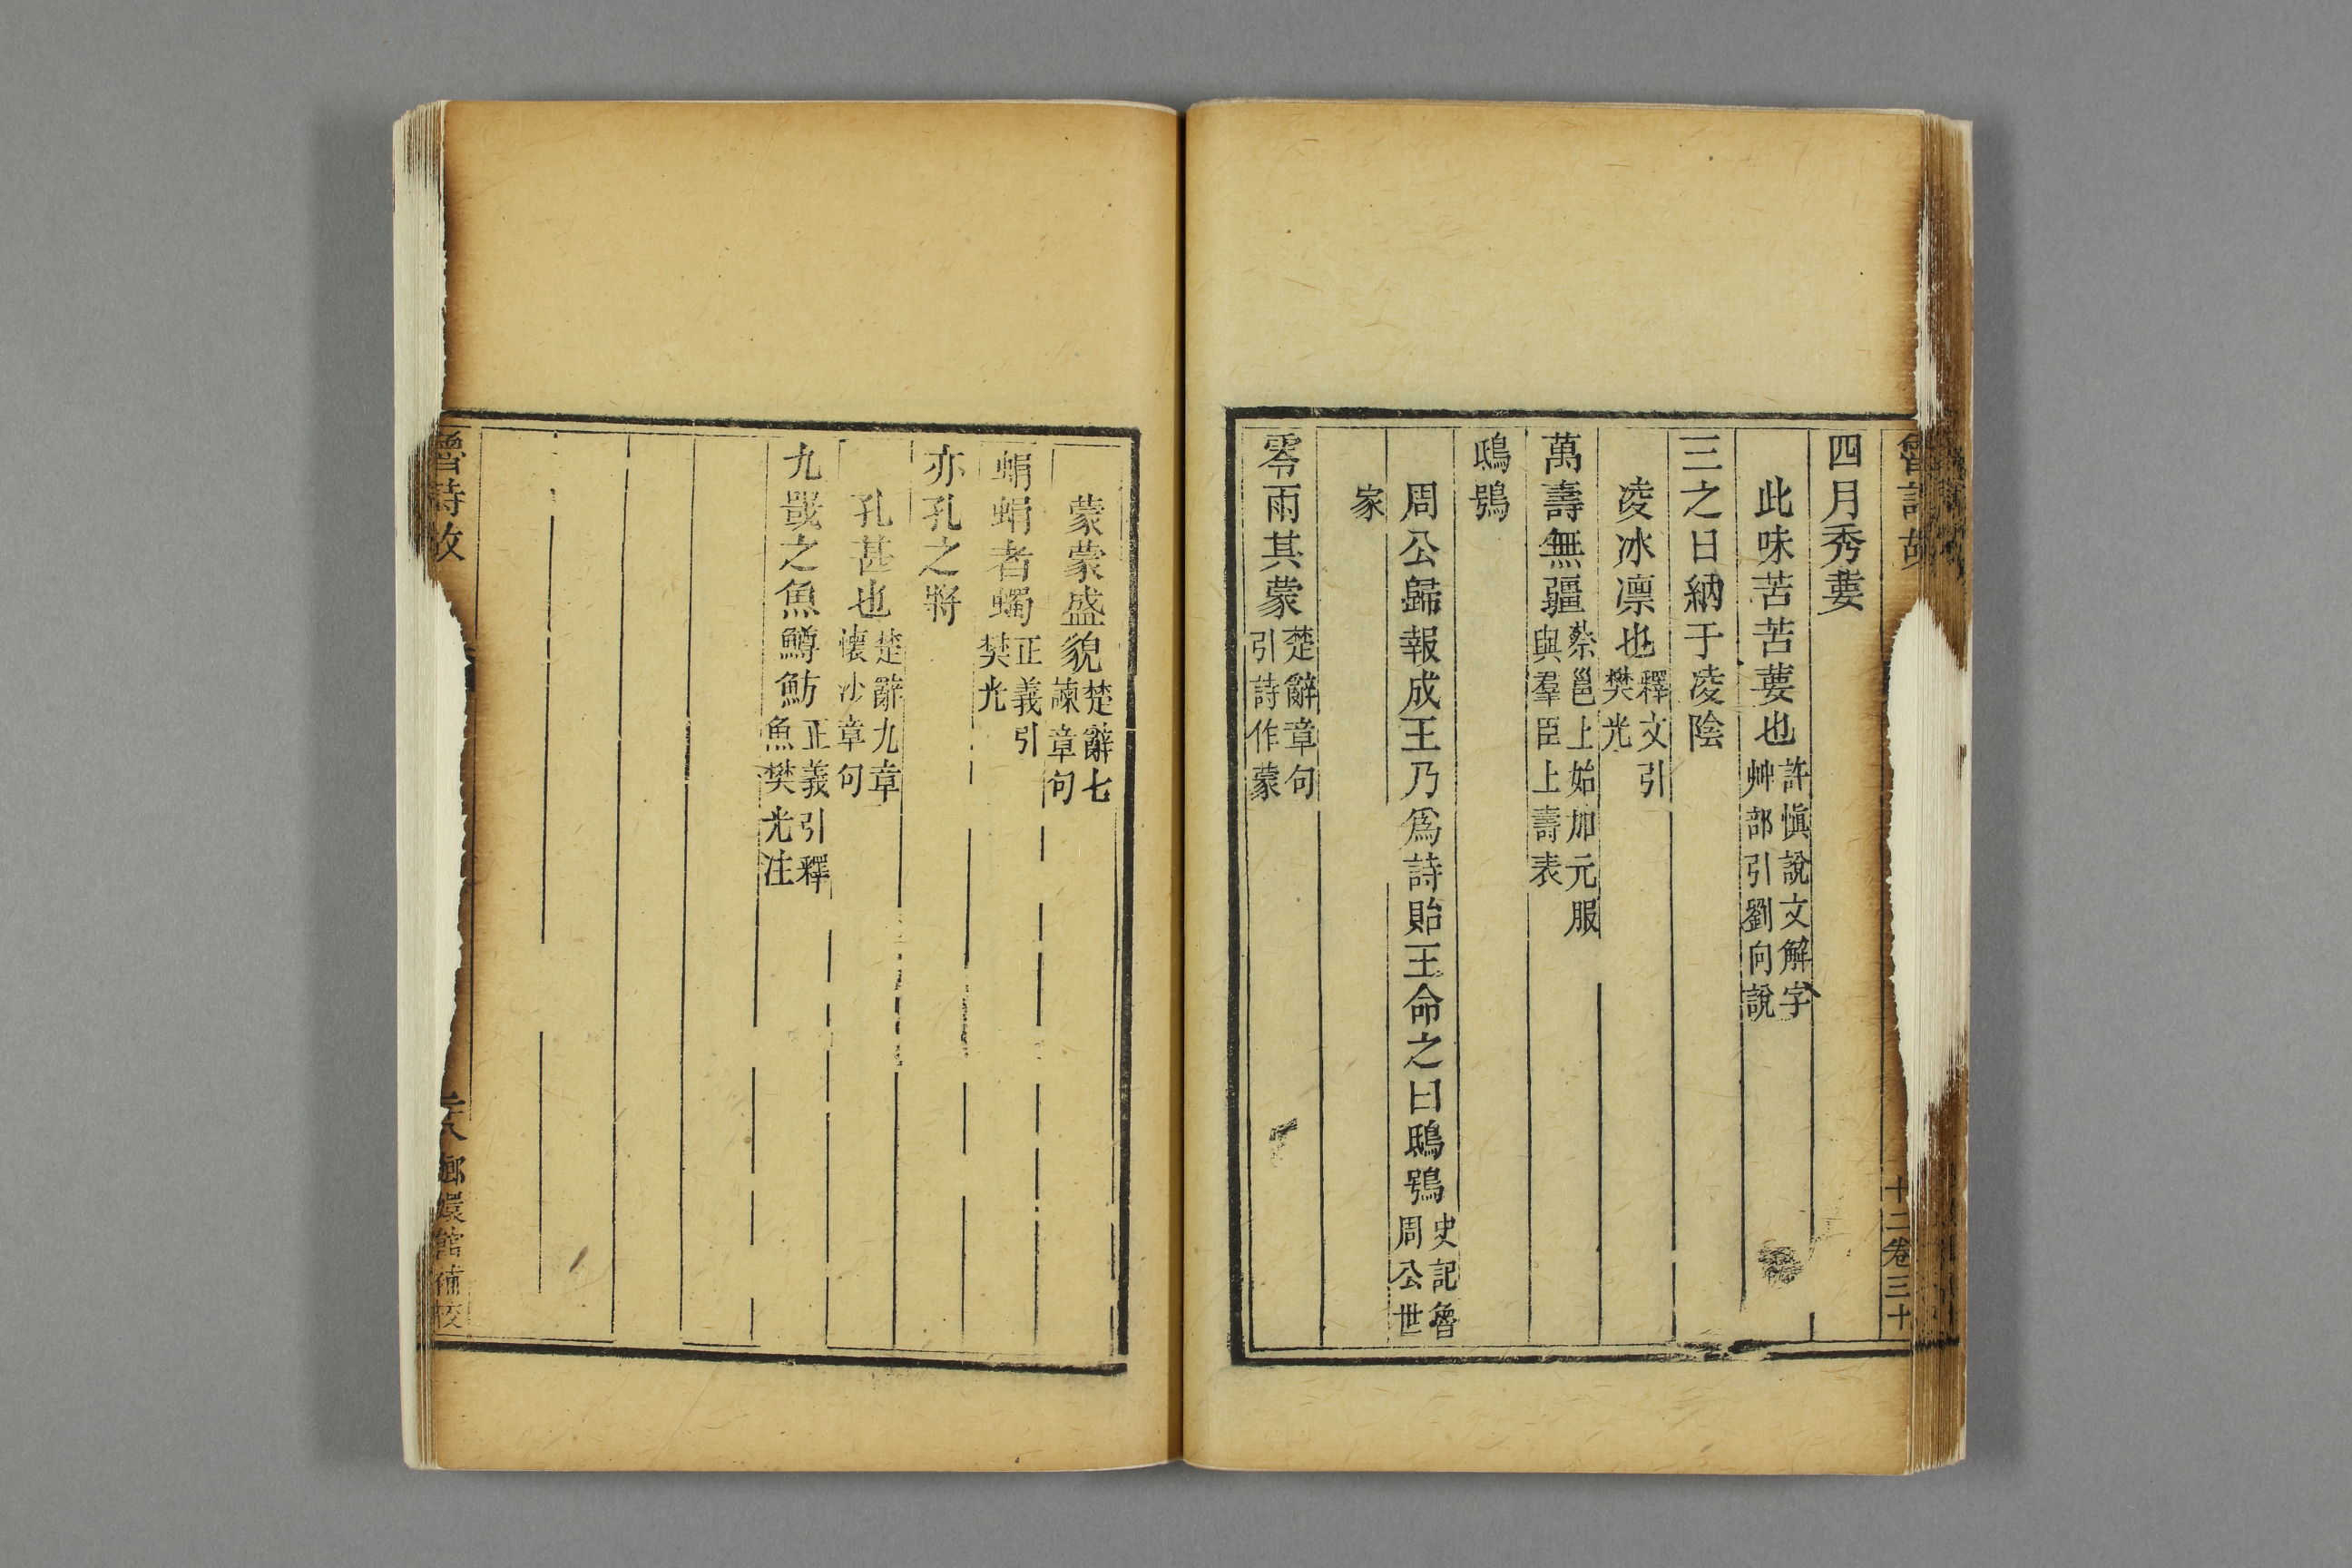 魯詩故
十二卷三十
四月秀葽
此味苦苦葽也許慎說文解字艸部引劉向說
三之日納于凌陰
凌冰凛也釋文引樊光
萬壽無疆蔡邕上始加元服與羣臣上壽表
鴟鴞
周公歸報成王乃爲詩貽王命之曰鴟鴞史記魯周公世
家
零雨其蒙楚辭章句引詩作蒙
蒙蒙盛貌楚辭七諫章句
蜎蜎者蠋正義引樊光
亦孔之將
孔甚也楚辭九章懷沙章句
九罭之魚鱒魴正義引釋魚樊光注
魯詩故
嫏嬛館補校